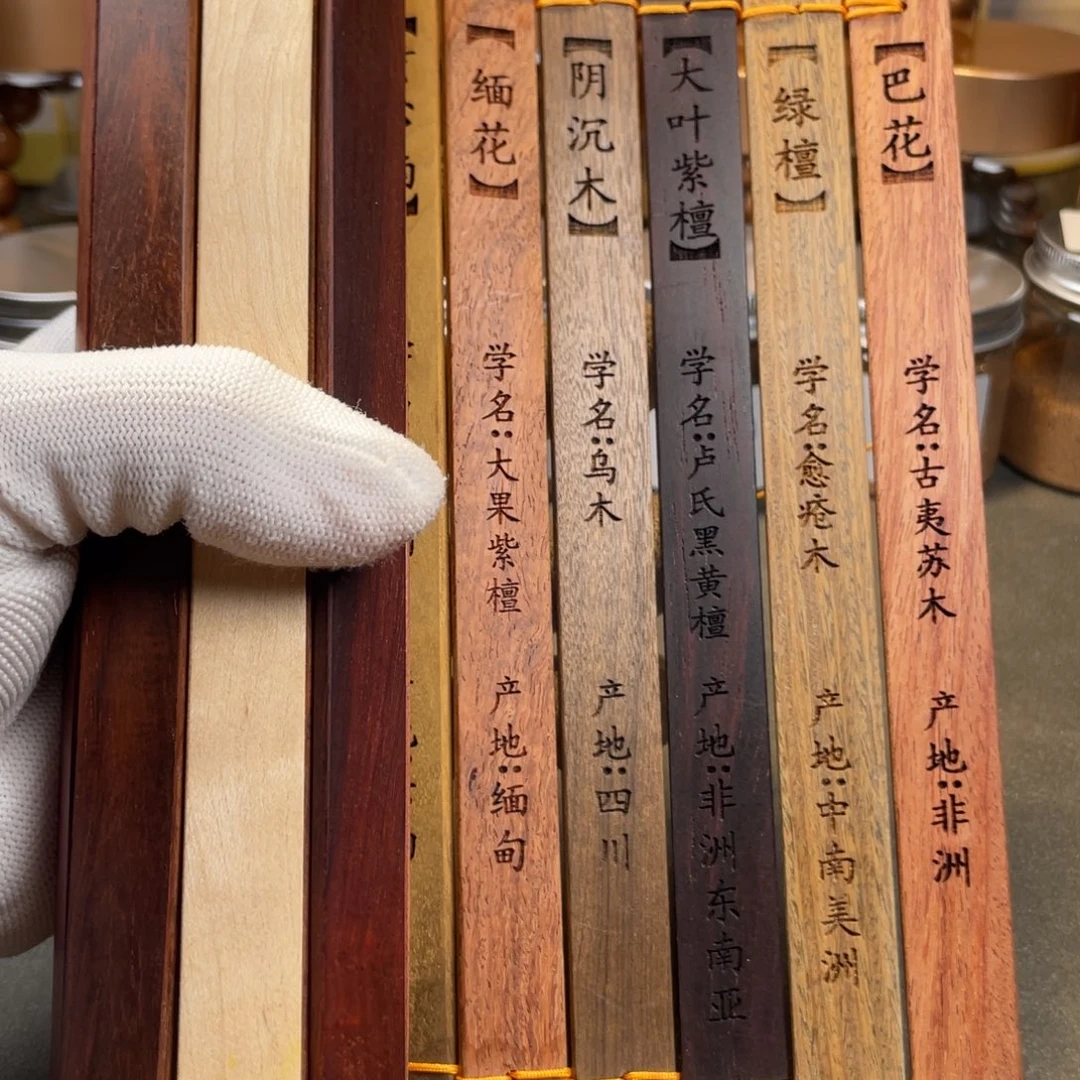 【巴花】
学名：古夷苏木
产地：非洲
【绿檀】
学名：愈疮木
产地：中南美洲
【大叶紫檀】
学名：卢氏黑黄檀
产地：非洲东南亚
【阴沉木】
学名：乌木
产地：四川
【缅花】
学名：大果紫檀
产地：缅甸